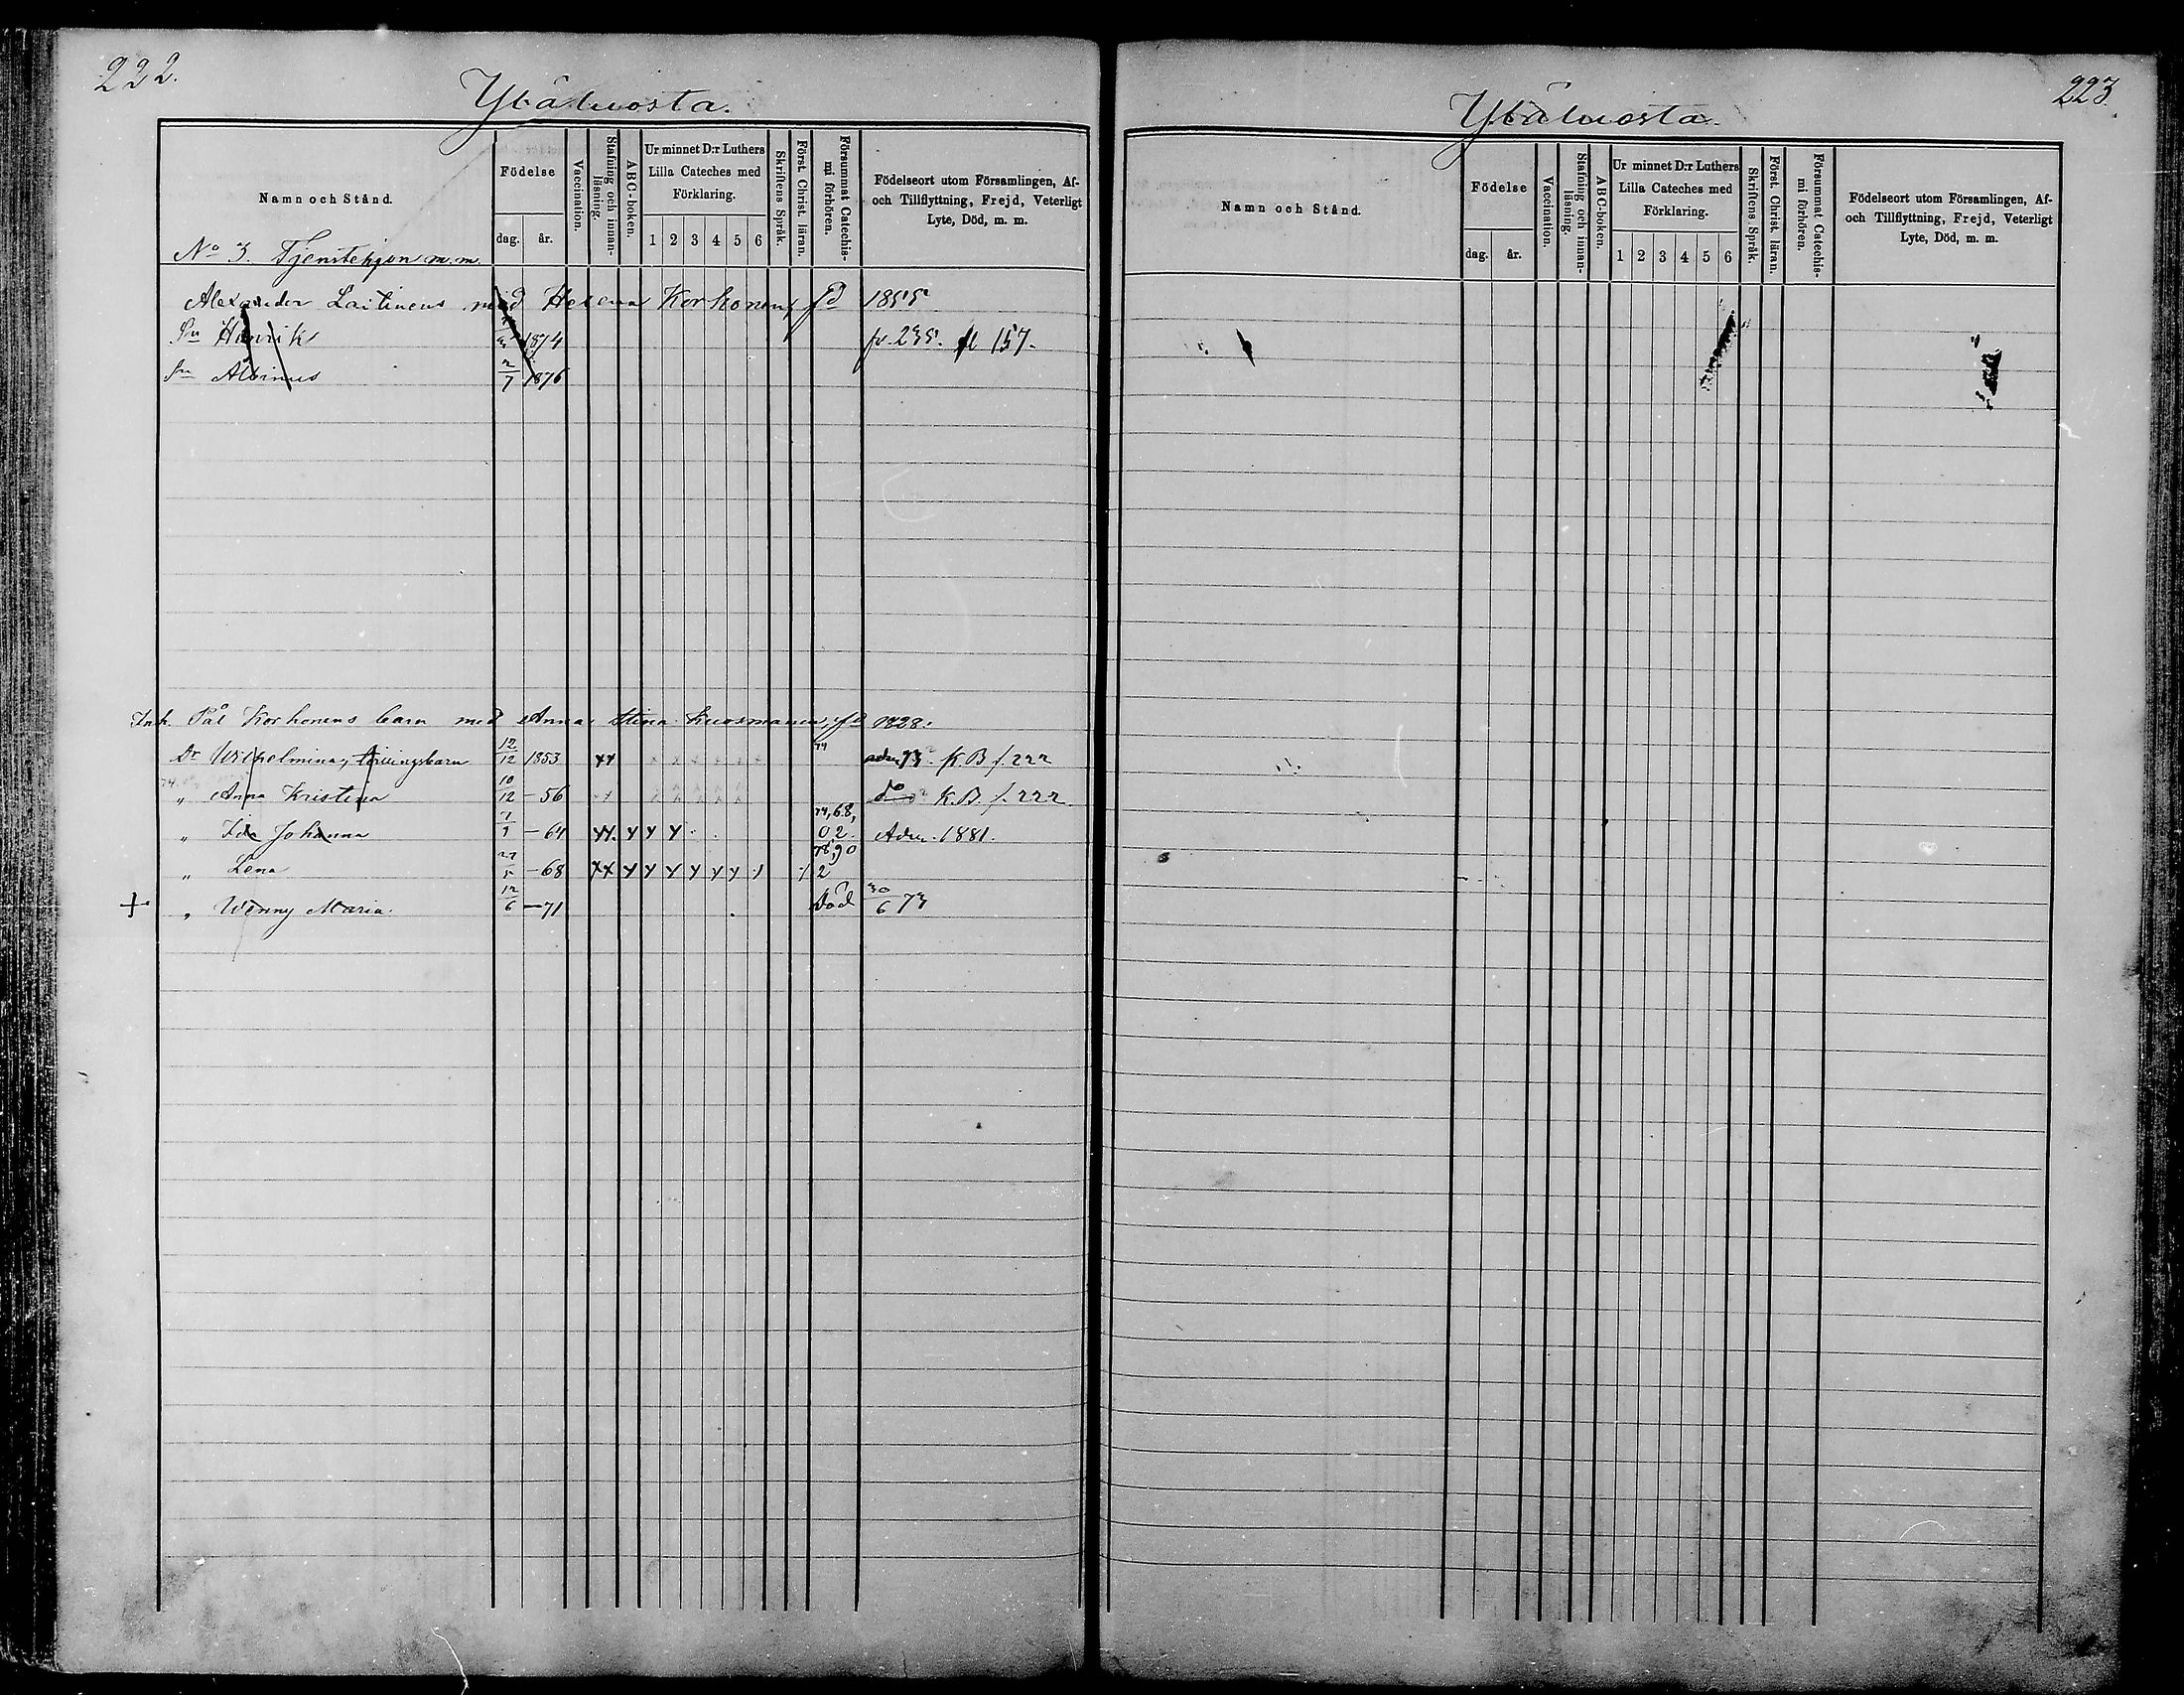 222.
Namn och Stånd.
Födelse
dag. år.
Vaccination.
Stafning och innan-läsning.
ABC-boken.
Ur minnet D:r Luthers
Lilla Cateches med
Förklaring.
1 2 3 4 5 6
Skriftens Språk.
Först. Christ. läran.
Försummat Catechis-mi förhören.
Födelseort utom Församlingen, Af-
och Tillflyttning, Frejd, Veterligt
Lyte, Död, m. m.
No 3. Tjenstehjon m.m.
Alexander Laitinens med Helena Korhonen, fd 1855
Sn Henrik 1874 fr. 235. fl 157.
Sn Albinus 2/7 1876
Inh. Pål Korhonens barn med Anna Stina Kuosmanen, fd 1828.
Dr Wilhelmina, 12/12 1853 xx 74 adm 73. K.B. f. 222
" Anna Kristina 10/12 - 56 do K.B. f. 222
" Ida Johanna - 64 Adm. 1881.
" Lena 27/5 - 68
+ " Wenny Maria. 12/6 - 71 Död 30/6 73
223
Namn och Stånd.
Födelse
dag. år.
Vaccination.
Stafning och innan-läsning.
ABC-boken.
Ur minnet D:r Luthers
Lilla Cateches med
Förklaring.
1 2 3 4 5 6
Skriftens Språk.
Först. Christ. läran.
Försummat Catechis-mi förhören.
Födelseort utom Församlingen, Af-
och Tillflyttning, Frejd, Veterligt
Lyte, Död, m. m.